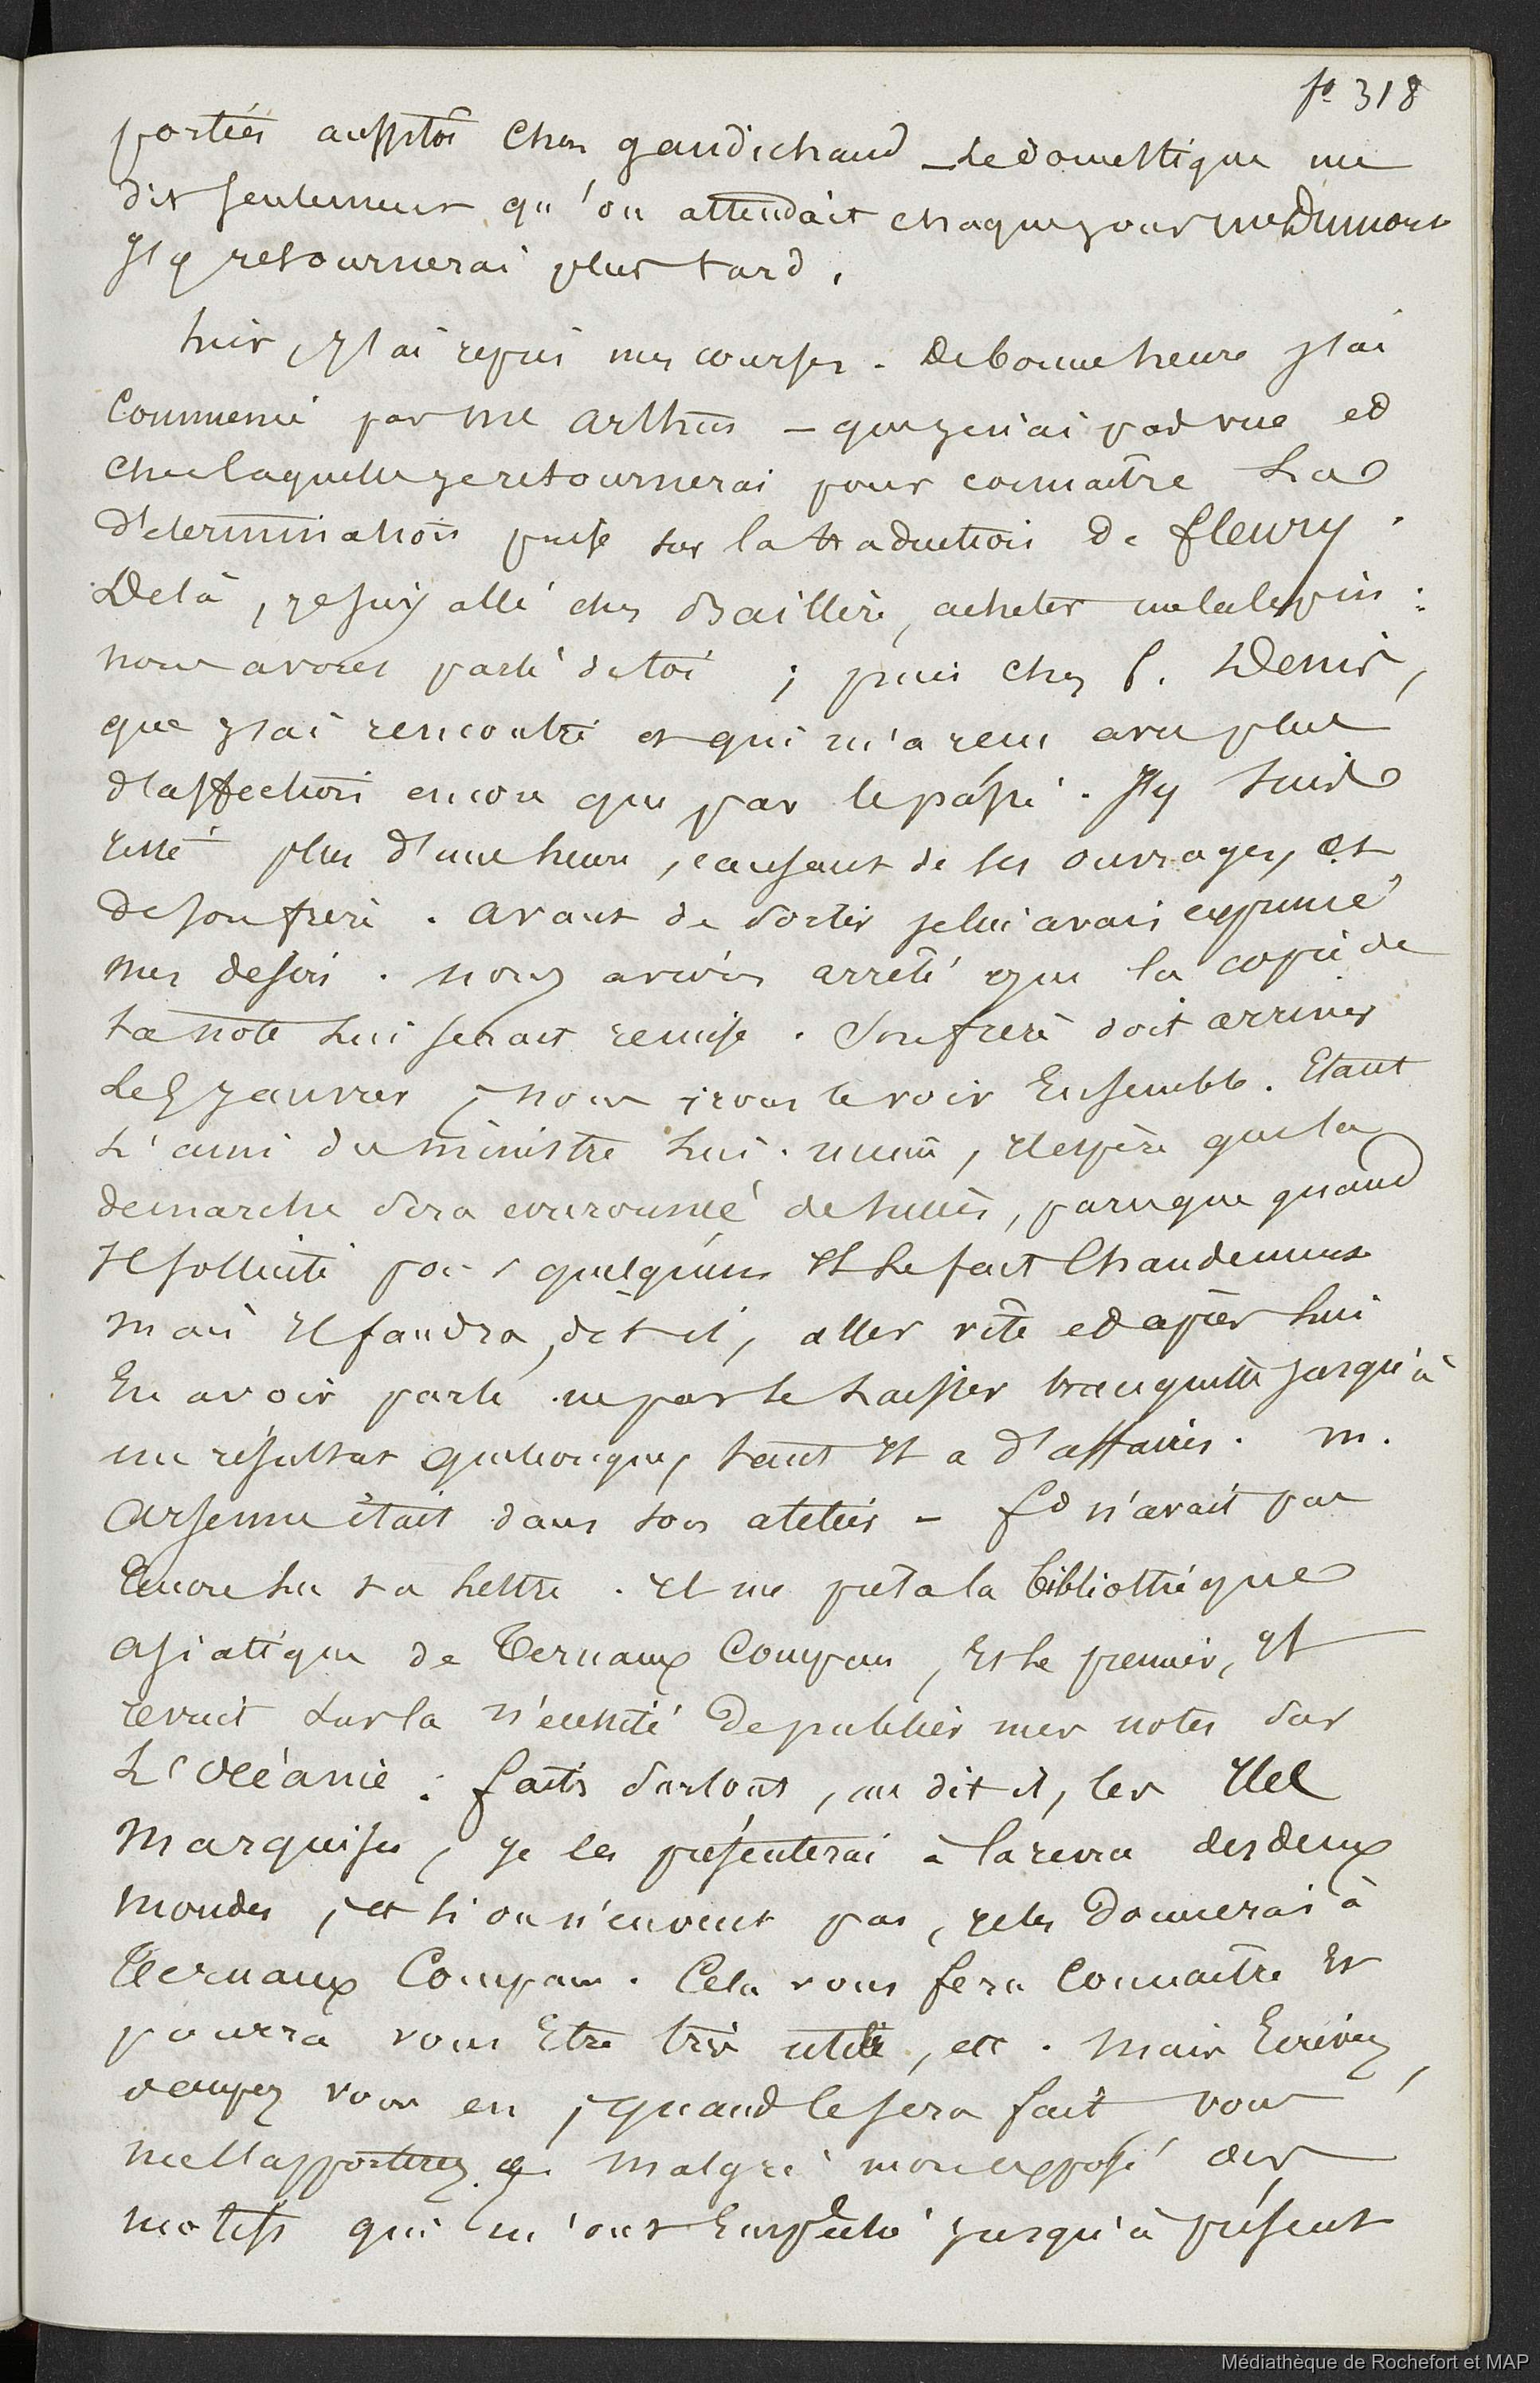 fo 318
portées aussitôt chez gaudichaud _ le domestique me
dit seulement qu'on attendait chaque jour me Dumont
J'y retournerai plus tard.
hier, J'ai repris mes courses. De bonne heure j'ai
Commencé par me arthus – que je n'ai pas vue et
chez laquelle je retournerai pour connaitre La
détermination prise sur la traduction de fleury.
De là, je suis allé chez Baillière, acheter :
nous avons parlé de toi ; puis chez f. Denis,
que j'ai rencontré et qui m'a reçu avec plus
d'affection encore que par le passé. J'y suis
resté plus d'une heure, causant de ses ouvrages, et
de son frère. avant de sortir je lui avais exprimé
mes désirs. nous avions arrêté que la copie de
ta note lui serait remise. Son frère doit arriver
Le janvier ; nous irons le voir Ensemble. Etant
L'ami du ministre lui-même, il espère que la
demarche sera couronnée de succès, parceque quand
Il sollicite pour quelqu'un Il le fait Chaudement
mais Il faudra, dit-il, aller vite et après lui
En avoir parlé ne pas le laisser tranquille jusqu'à
un résultat quelconque, tant Il a d'affaires. m.
Arsenne était dans son atelier – fd n'avait pas
Encore lu ta lettre. Il me prêta la bibliothéque
asiatique de Ternaux Compans, Et le premier, Il
revint sur la nécessité De publier mes notes sur
L'Océanie : faites surtout, me dit il, les Iles
Marquises, je les présenterai à la revue des deux
mondes, et si on n'en veut pas, je les Donnerai à
Ternaux Compans. Cela vous fera Connaître Et
pourra vous Etre très utile, etc. Mais Ecrivez,
occupez vous en ; quand ce sera fait vous
me l'apporterez. Malgré mon exposé des
motifs qui m'ont Empêché jusqu'à présent
Médiathèque de Rochefort et MAP